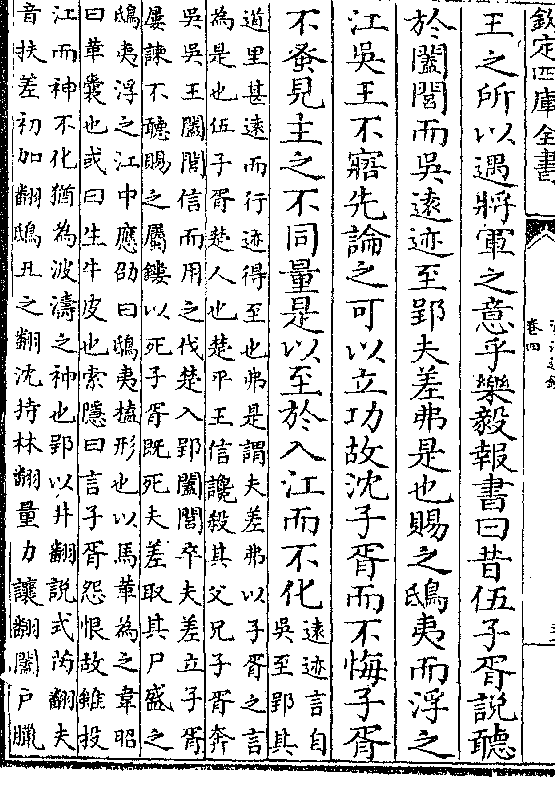 欽定四庫全書
卷四
王之所以遇將軍之意乎樂毅報書曰昔伍子胥說聽
於闔閭而吳逺迹至郢夫差弗是也賜之鴟夷而浮之
江吳王不寤先論之可以立功故沈子胥而不悔子胥
不蚤見主之不同量是以至於入江而不化
逺迹言自
吳至郢其
道里甚逺而行迹得至也弗是謂夫差弗以子胥之言
為是也伍子胥楚人也楚平王信讒殺其父兄子胥奔
吳吳王闔閭信而用之伐楚入郢闔閭卒夫差立子胥
屢諫不聽賜之屬鏤以死子胥既死夫差取其尸盛之
鴟夷浮之江中應劭曰鴟夷榼形也以馬革為之韋昭
曰革囊也或曰生牛皮也索隱曰言子胥怨恨故雖投
江而神不化猶為波濤之神也郢以井翻說式芮翻夫
音扶差初加翻鴟丑之翻沈持林翻量力讓翻闔戸臘